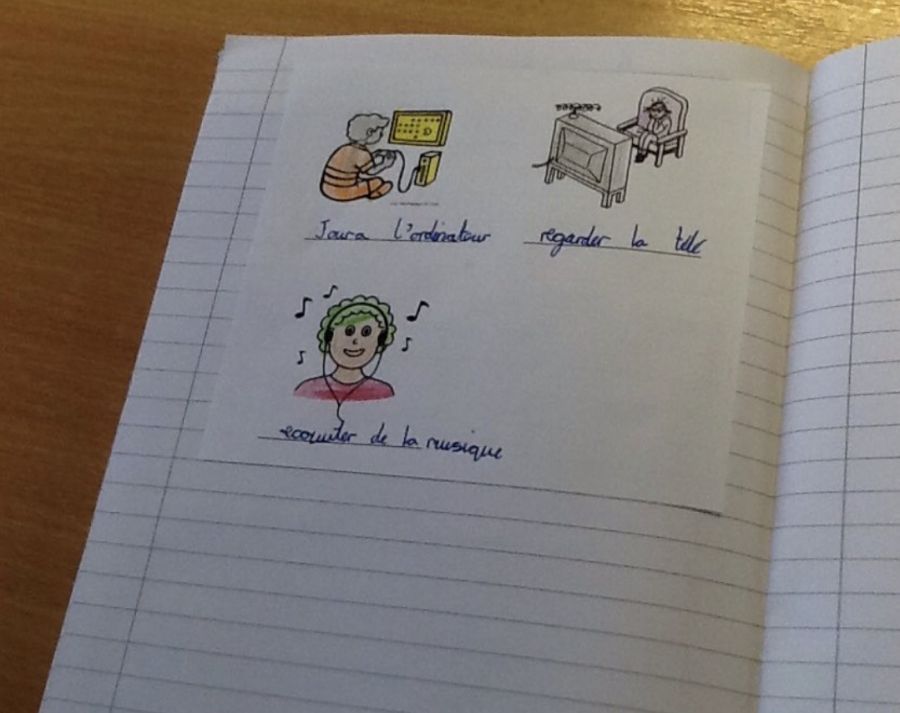 Joura l'ordinateur
regarder la télé
ecouuter de la musique